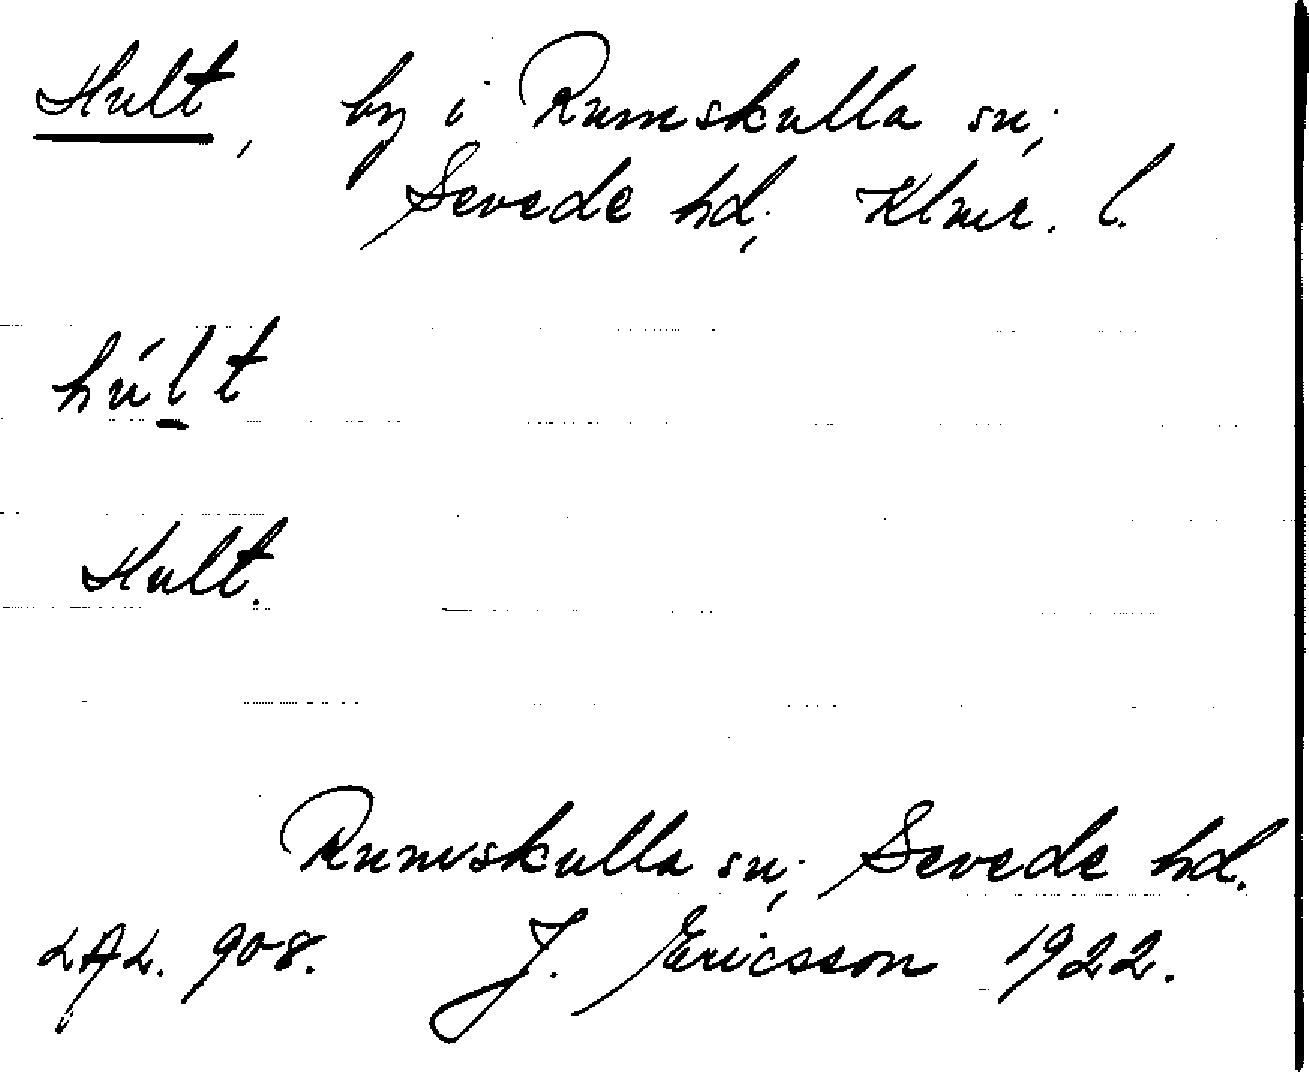 Hult, by i Rumskulla sn.,
Sevede hd., Klmr. l.
húl̲t
Hult.
Rumskulla sn., Sevede hd.
LAL. 908. J. Ericsson 1922.